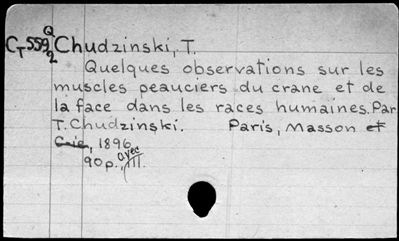 CT559Q2 Chudzinski, T.
Quelques observations sur les
muscles peauciers du crane et de
la face dans les races humaines. Par
T. Chudzinski. Paris, Masson et
Cie, 1896
90p., avec ill.